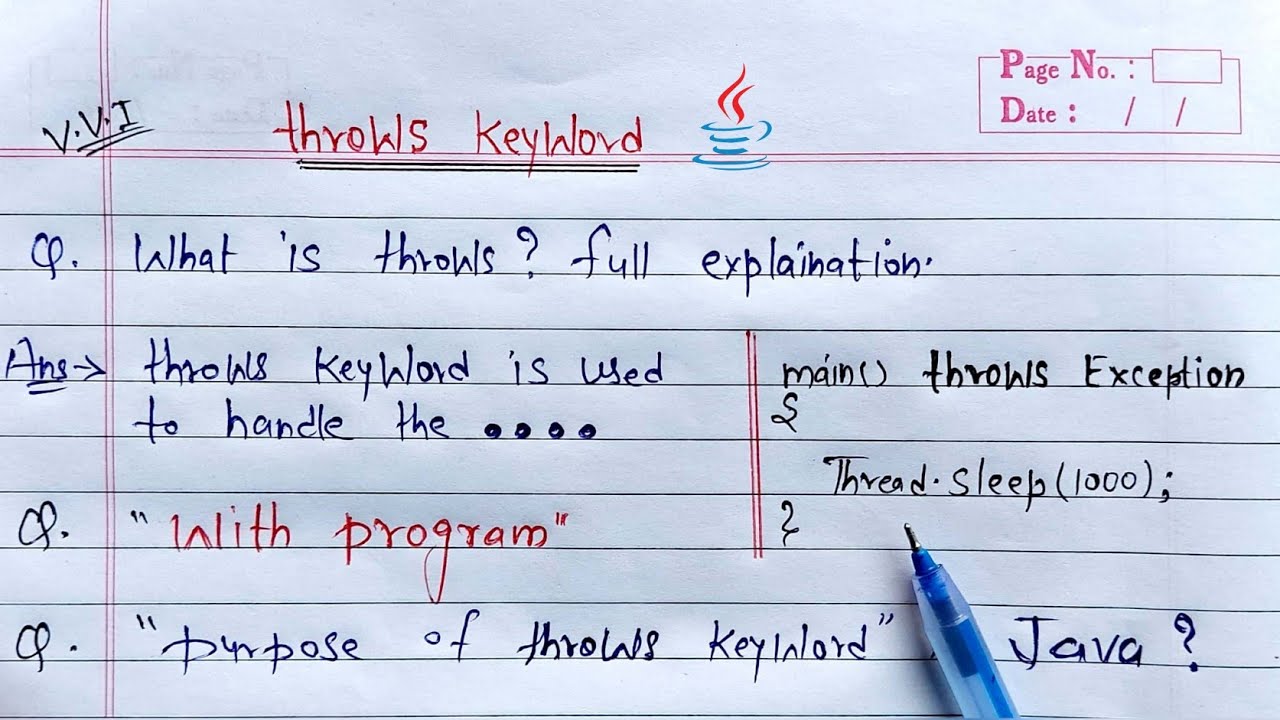 Page No. :
Date : / /
V.V.I
throws keyword
Q. What is throws? full explaination.
Ans→ throws keyword is used
to handle the ....
main() throws Exception
{
Thread.sleep(1000);
}
Q. "With program"
Q. "purpose of throws keyword" Java?